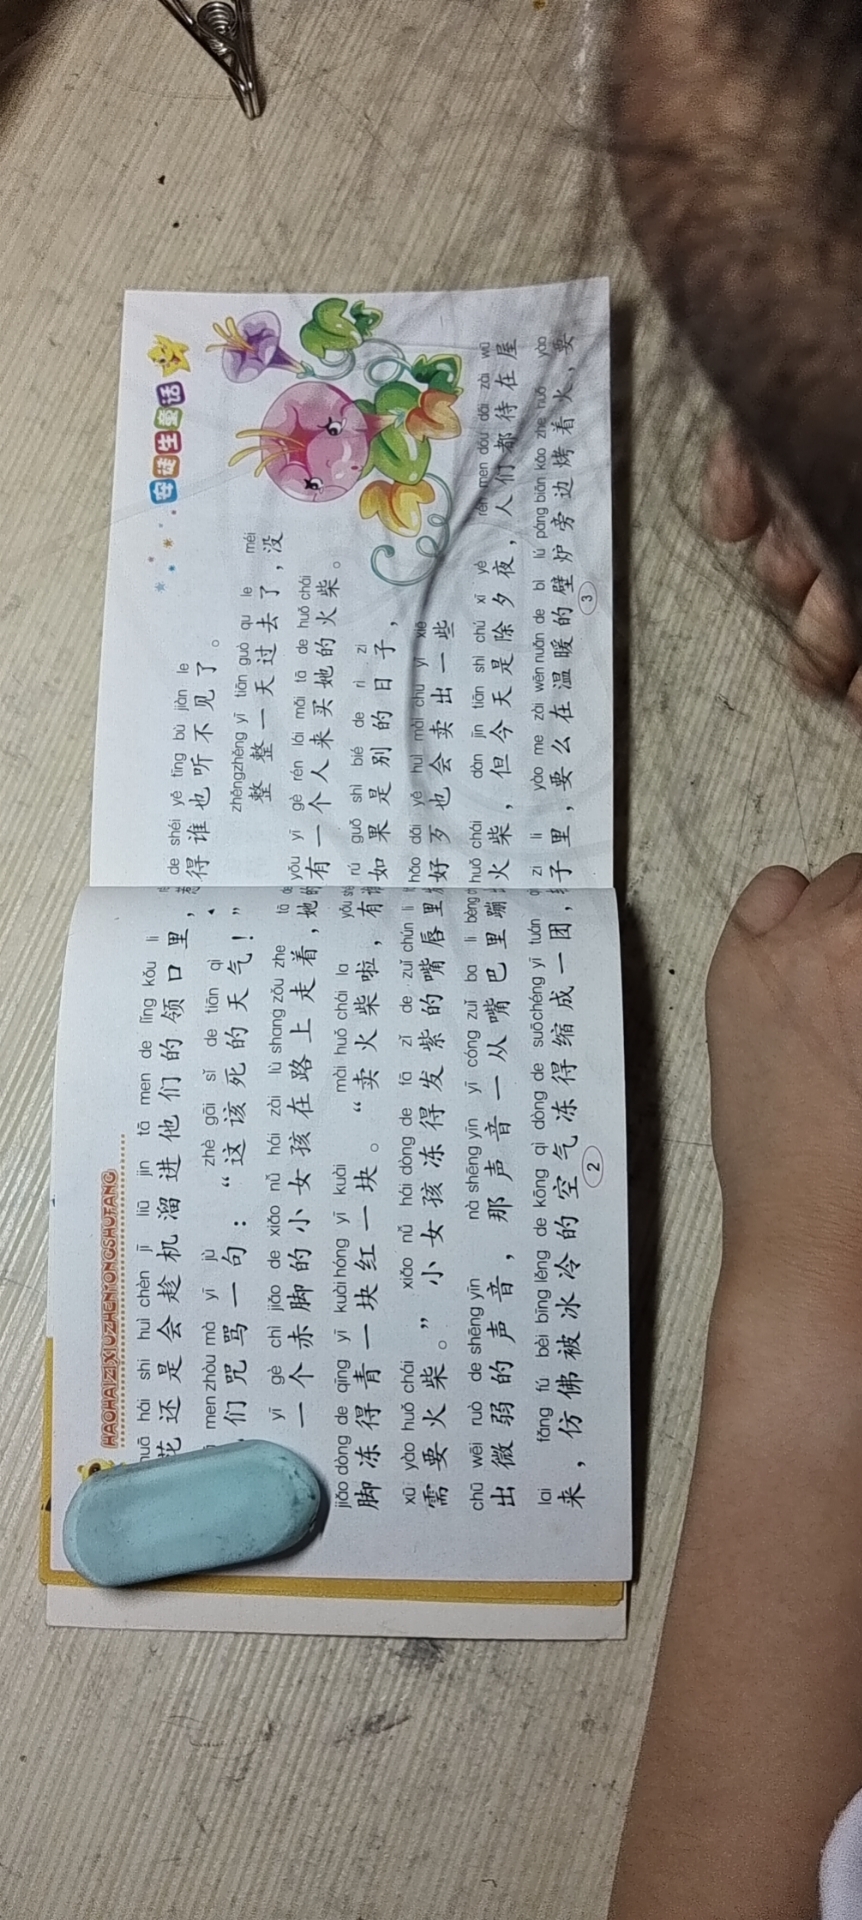 HAOHAIZIXIUZHENTONGSHUFANG
huā hái shi huì chèn jī liū jìn tā men de lǐng kǒu li
花还是会趁机溜进他们的领口里，
men zhòu mà yī jù zhè gāi sǐ de tiān qì
们咒骂一句：“这该死的天气！”
yī gè chì jiǎo de xiǎo nǚ hái zài lù shang zǒu zhe tā
一个赤脚的小女孩在路上走着，她的
jiǎo dòng de qīng yī kuài hóng yī kuài mài huǒ chái la yǒu
脚冻得青一块红一块。“卖火柴啦，有
xū yào huǒ chái xiǎo nǚ hái dòng de fā zǐ de zuǐ chún li
需要火柴。”小女孩冻得发紫的嘴唇里
chū wēi ruò de shēng yīn nà shēng yīn yī cóng zuǐ ba li bèng
出微弱的声音，那声音一从嘴巴里蹦
lai fǎng fú bèi bīng lěng de kōng qì dòng de suō chéng yī tuán
来，仿佛被冰冷的空气冻得缩成一团，
2
安徒生童话
de shéi yě tīng bú jiàn le
得谁也听不见了。
zhěng zhěng yī tiān guò qu le méi
整整一天过去了，没
yǒu yī gè rén lái mǎi tā de huǒ chái
有一个人来买她的火柴。
rú guǒ shì bié de rì zi
如果是别的日子，
hǎo dǎi yě huì mài chū yī xiē
好歹也会卖出一些
huǒ chái dàn jīn tiān shì chú xī yè rén men dōu dāi zài wū
火柴，但今天是除夕夜，人们都待在屋
zi li yào me zài wēn nuǎn de bì lú páng biān kǎo zhe huǒ yào
子里，要么在温暖的壁炉旁边烤着火，要
3